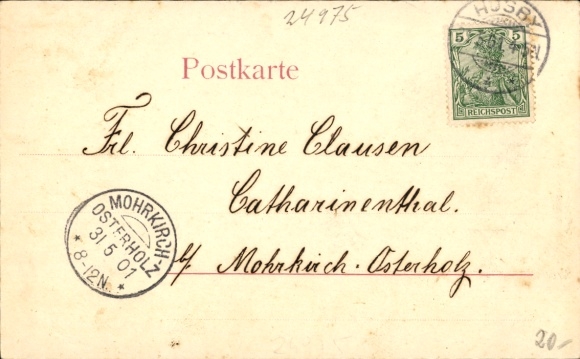 24975
HUSBY
5 5
REICHSPOST
Postkarte
Frl. Christine Clausen
Catharinenthal.
b/ Mohrkirch-Osterholz.
MOHRKIRCH-
OSTERHOLZ
31 5 01
* 8-12N. *
20-